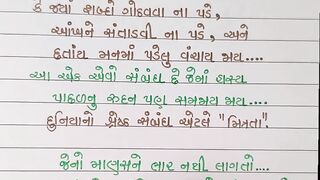 કે જ્યાં શબ્દો ગોઠવવા ના પડે,
આંખને સંતાડવી ના પડે, અને
છતાંય મનમાં પડેલુ વંચાય જાય....
આ એક એવો સંબંધ છે જેમાં હાસ્ય
પાછળનુ રુદન પણ સમજાય જાય....
દુનિયાનો શ્રેષ્ઠ સંબંધ એટલે "મિત્રતા".
જેનો માણસને ભાર નથી લાગતો....